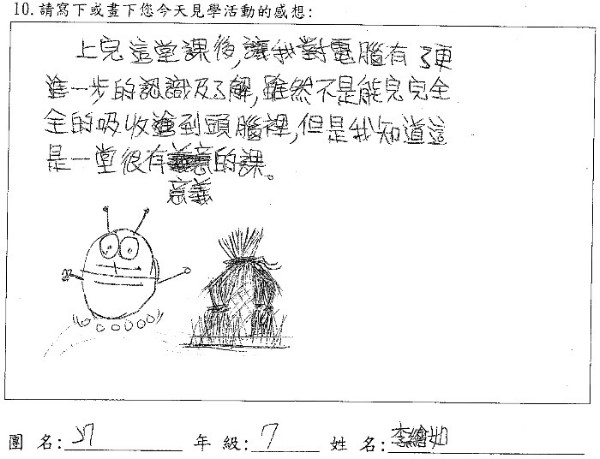 10.請寫下或畫下您今天見學活動的感想:
上完這堂課後,讓我對電腦有了更
進一步的認識及了解,雖然不是能完完全
全的吸收到頭腦裡,但是我知道這
是一堂很有意義的課。
團 名: 27 年 級: 7 姓 名: 李繪如